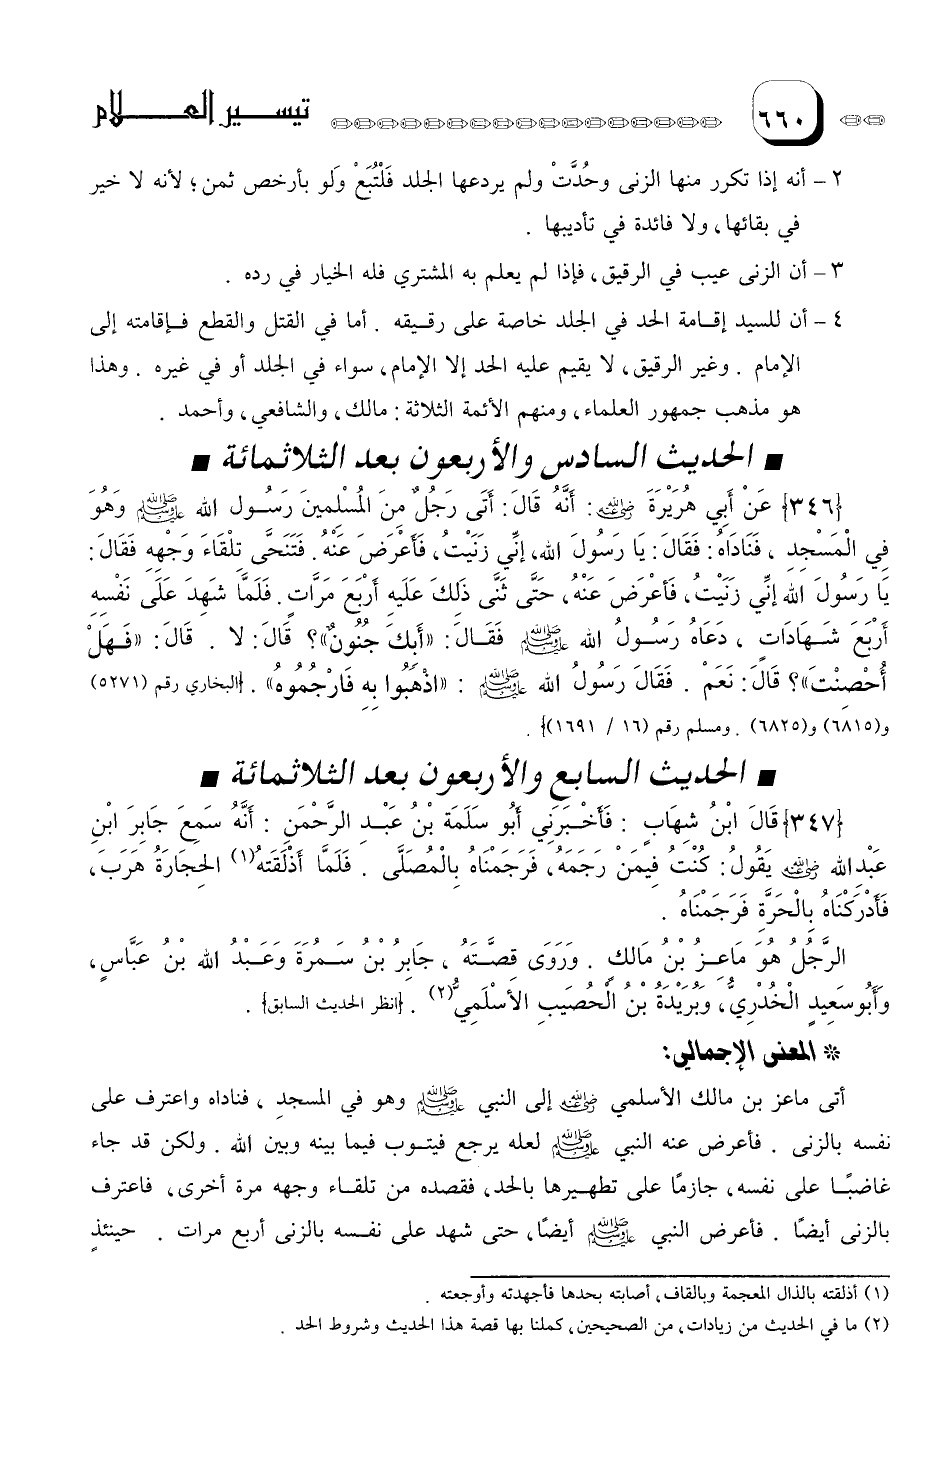 ٦٦٠ تيسير العلام
٢ - أنه إذا تكرر منها الزنى وحُدَّتْ ولم يردعها الجلد فَلْتُبَعْ ولو بأرخص ثمن؛ لأنه لا خير
في بقائها، ولا فائدة في تأديبها .
٣ - أن الزنى عيب في الرقيق، فإذا لم يعلم به المشتري فله الخيار في رده .
٤ - أن للسيد إقامة الحد في الجلد خاصة على رقيقه . أما في القتل والقطع فإقامته إلى
الإمام . وغير الرقيق، لا يقيم عليه الحد إلا الإمام، سواء في الجلد أو في غيره . وهذا
هو مذهب جمهور العلماء، ومنهم الأئمة الثلاثة: مالك، والشافعي، وأحمد .
■ الحديث السادس والأربعون بعد الثلاثمائة ■
{٣٤٦} عَنْ أَبِي هُرَيْرَةَ رضي الله عنه: أَنَّهُ قَالَ: أَتَى رَجُلٌ مِنَ الْمُسْلِمِينَ رَسُولَ الله ﷺ وَهُوَ
فِي الْمَسْجِدِ ، فَنَادَاهُ: فَقَالَ: يَا رَسُولَ الله، إِنِّي زَنَيْتُ، فَأَعْرَضَ عَنْهُ. فَتَنَحَّى تِلْقَاءَ وَجْهِهِ فَقَالَ:
يَا رَسُولَ الله إِنِّي زَنَيْتُ، فَأَعْرَضَ عَنْهُ، حَتَّى ثَنَّى ذَلِكَ عَلَيهِ أَرْبَعَ مَرَّاتٍ. فَلَمَّا شَهِدَ عَلَى نَفْسِهِ
أَرْبَعَ شَهَادَاتٍ ، دَعَاهُ رَسُولُ الله ﷺ فَقَالَ: «أَبِكَ جُنُونٌ»؟ قَالَ: لا . قَالَ: «فَهَلْ
أُحْصِنْتَ»؟ قَالَ: نَعَمْ . فَقَالَ رَسُولُ الله ﷺ : «اذْهَبُوا بِهِ فَارْجُمُوه» . {البخاري رقم (٥٢٧١)
و(٦٨١٥) و(٦٨٢٥) . ومسلم رقم (١٦ / ١٦٩١)} .
■ الحديث السابع والأربعون بعد الثلاثمائة ■
{٣٤٧} قَالَ ابْنُ شِهَابٍ : فَأَخْبَرَنِي أَبُو سَلَمَةَ بْنُ عَبْدِ الرَّحْمَنِ : أَنَّهُ سَمِعَ جَابِرَ ابْنِ
عَبْدِالله رضي الله عنه يَقُولُ: كُنْتُ فِيمَنْ رَجَمَهُ، فَرَجَمْنَاهُ بِالْمُصَلَّى . فَلَمَّا أَذْلَقَتهُ(١) الحِجَارَةُ هَرَبَ،
فَأَدْرَكْنَاهُ بِالحَرَّةِ فَرَجَمْنَاهُ .
الرَّجُلُ هُوَ مَاعِزُ بْنُ مَالكٍ . وَرَوَى قِصَّتَهُ ، جَابِرُ بْنُ سَمُرَةَ وَعَبْدُ الله بْنُ عَبَّاسٍ،
وَأَبُو سَعِيدٍ الْخُدْرِيُّ، وَبُرَيْدَةُ بْنُ الْحُصَيْبِ الأَسْلَمِيُّ(٢) . {انظر الحديث السابق} .
* المعنى الإجمالي:
أتى ماعز بن مالك الأسلمي رضي الله عنه إلى النبي ﷺ وهو في المسجدِ ، فناداه واعترف على
نفسه بالزنى . فأعرض عنه النبي ﷺ لعله يرجع فيتوب فيما بينه وبين الله . ولكن قد جاء
غاضبًا على نفسه، جازمًا على تطهيرها بالحد، فقصده من تلقاء وجهه مرة أخرى، فاعترف
بالزنى أيضًا . فأعرض النبي ﷺ أيضًا، حتى شهد على نفسه بالزنى أربع مرات . حينئذٍ
(١) أذلقته بالذال المعجمة وبالقاف، أصابته بحدها فأجهدته وأوجعته .
(٢) ما في الحديث من زيادات، من الصحيحين، كملنا بها قصة هذا الحديث وشروط الحد .